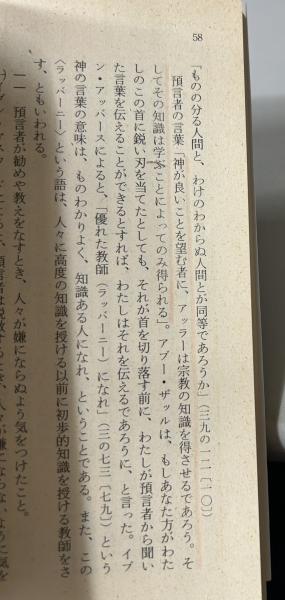 58
「ものの分る人間と、わけのわからぬ人間とが同等であろうか」(三九の一二[一〇])
預言者の言葉「神が良いことを望む者に、アッラーは宗教の知識を得させるであろう。そ
してその知識は学ぶことによってのみ得られる」。アブー・ザッルは、もしあなた方がわた
しのこの首に鋭い刃を当てたとしても、それが首を切り落す前に、わたしが預言者から聞い
た言葉を伝えることができるとすれば、わたしはそれを伝えるであろうに、と言った。イブ
ン・アッバースによると、「優れた教師(ラッバーニー)になれ」(三の七三[七九])という
神の言葉の意味は、ものわかりよく、知識ある人になれ、ということである。また、この
〈ラッバーニー〉という語は、人々に高度の知識を授ける以前に初歩的知識を授ける教師をさ
す、ともいわれる。
一一 預言者が勧めや教えをなすとき、人々が嫌にならぬよう気をつけたこと。